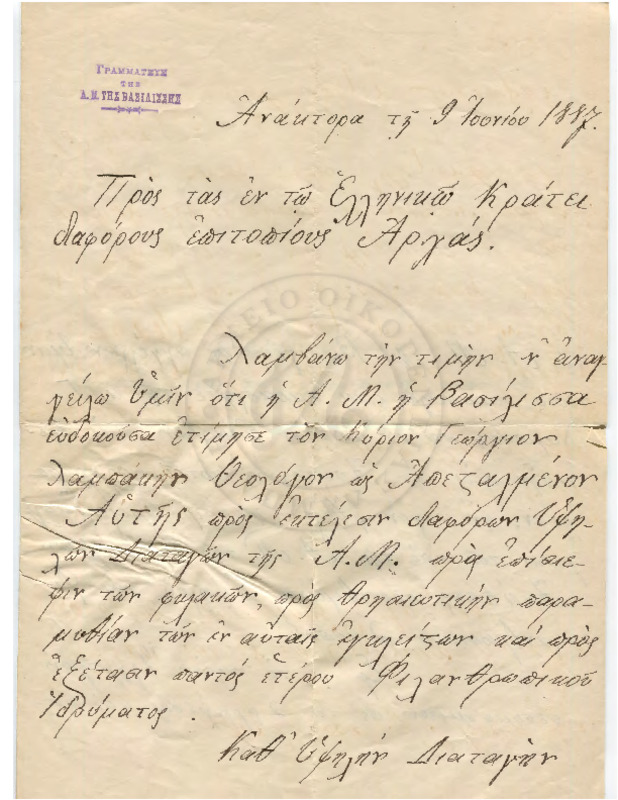 ΓΡΑΜΜΑΤΕΥΣ
ΤΗΣ
Α. Μ. ΤΗΣ ΒΑΣΙΛΙΣΣΗΣ
Ἀνάκτορα τῇ 9 Ἰουνίου 1887.
Πρὸς τὰς ἐν τῷ Ἑλληνικῷ Κράτει
διαφόρους ἐπιτοπίους Ἀρχάς.
Λαμβάνω τὴν τιμὴν ν' ἀναγ-
γείλω Ὑμῖν ὅτι ἡ Α. Μ. ἡ Βασίλισσα
εὐδοκοῦσα ἐτίμησε τὸν Κύριον Γεώργιον
Λαμπάκην Θεολόγον ὡς Ἀπεσταλμένον
Αὐτῆς πρὸς ἐκτέλεσιν διαφόρων Ὑψη-
λῶν Διαταγῶν τῆς Α. Μ. πρὸς ἐπίσκε-
ψιν τῶν φυλακῶν, πρὸς θρησκευτικὴν παρα-
μυθίαν τῶν ἐν αὐταῖς ἐγκλείστων καὶ πρὸς
ἐξέτασιν παντὸς ἑτέρου Φιλανθρωπικοῦ
Ἱδρύματος.
Καθ' Ὑψηλὴν Διαταγὴν